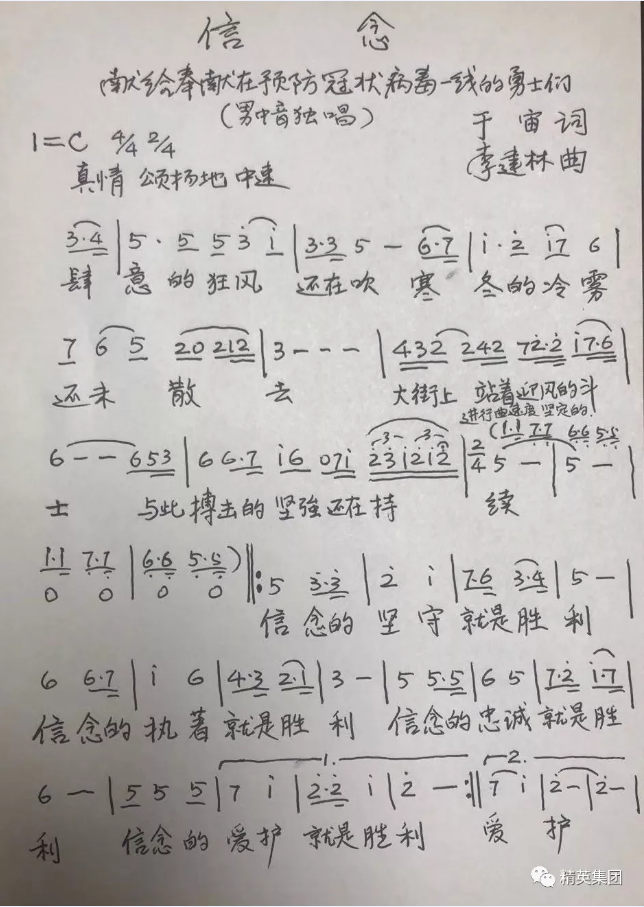 信 念
献给奉献在预防冠状病毒一线的勇士们
(男中音独唱)
于宙词
1=C 4/4 2/4
李建林曲
真情 颂扬地 中速
3·4 | 5· 5 5 3 i | 3·3 5 - 6·7 | i·2 i7 6
肆 意的狂风 还在吹 寒 冬的冷雾
7 6 5 20 212 | 3 - - - | 432 242 72·2 i7·6
还未 散 去 大街上 站着迎风的斗
进行曲速度 坚定的.
6 - - 653 | 6 6·7 i6 07i 23i2i2 | 2/4 5 - | 5 - |
(1·1 7·7 6·6 5·5
士 与此搏击的坚強还在持 续
1·1 7·7 | 6·6 5·5) ‖: 5 3·3 | 2 i | 7·6 3·4 | 5 - |
0 0 0 0
信 念的 坚 守 就是胜 利
6 6·7 | i 6 | 4·3 2·1 | 3 - | 5 5·5 | 6 5 | 7·2 i·7 |
信念的执著就是胜 利 信念的忠诚就是胜
1. 2.
6 - | 5 5 5 | 7 i | 2·2 i | 2 - :‖ 7 i | 2 - | 2 - |
利 信念的爱护 就是胜利 爱 护
精英集团